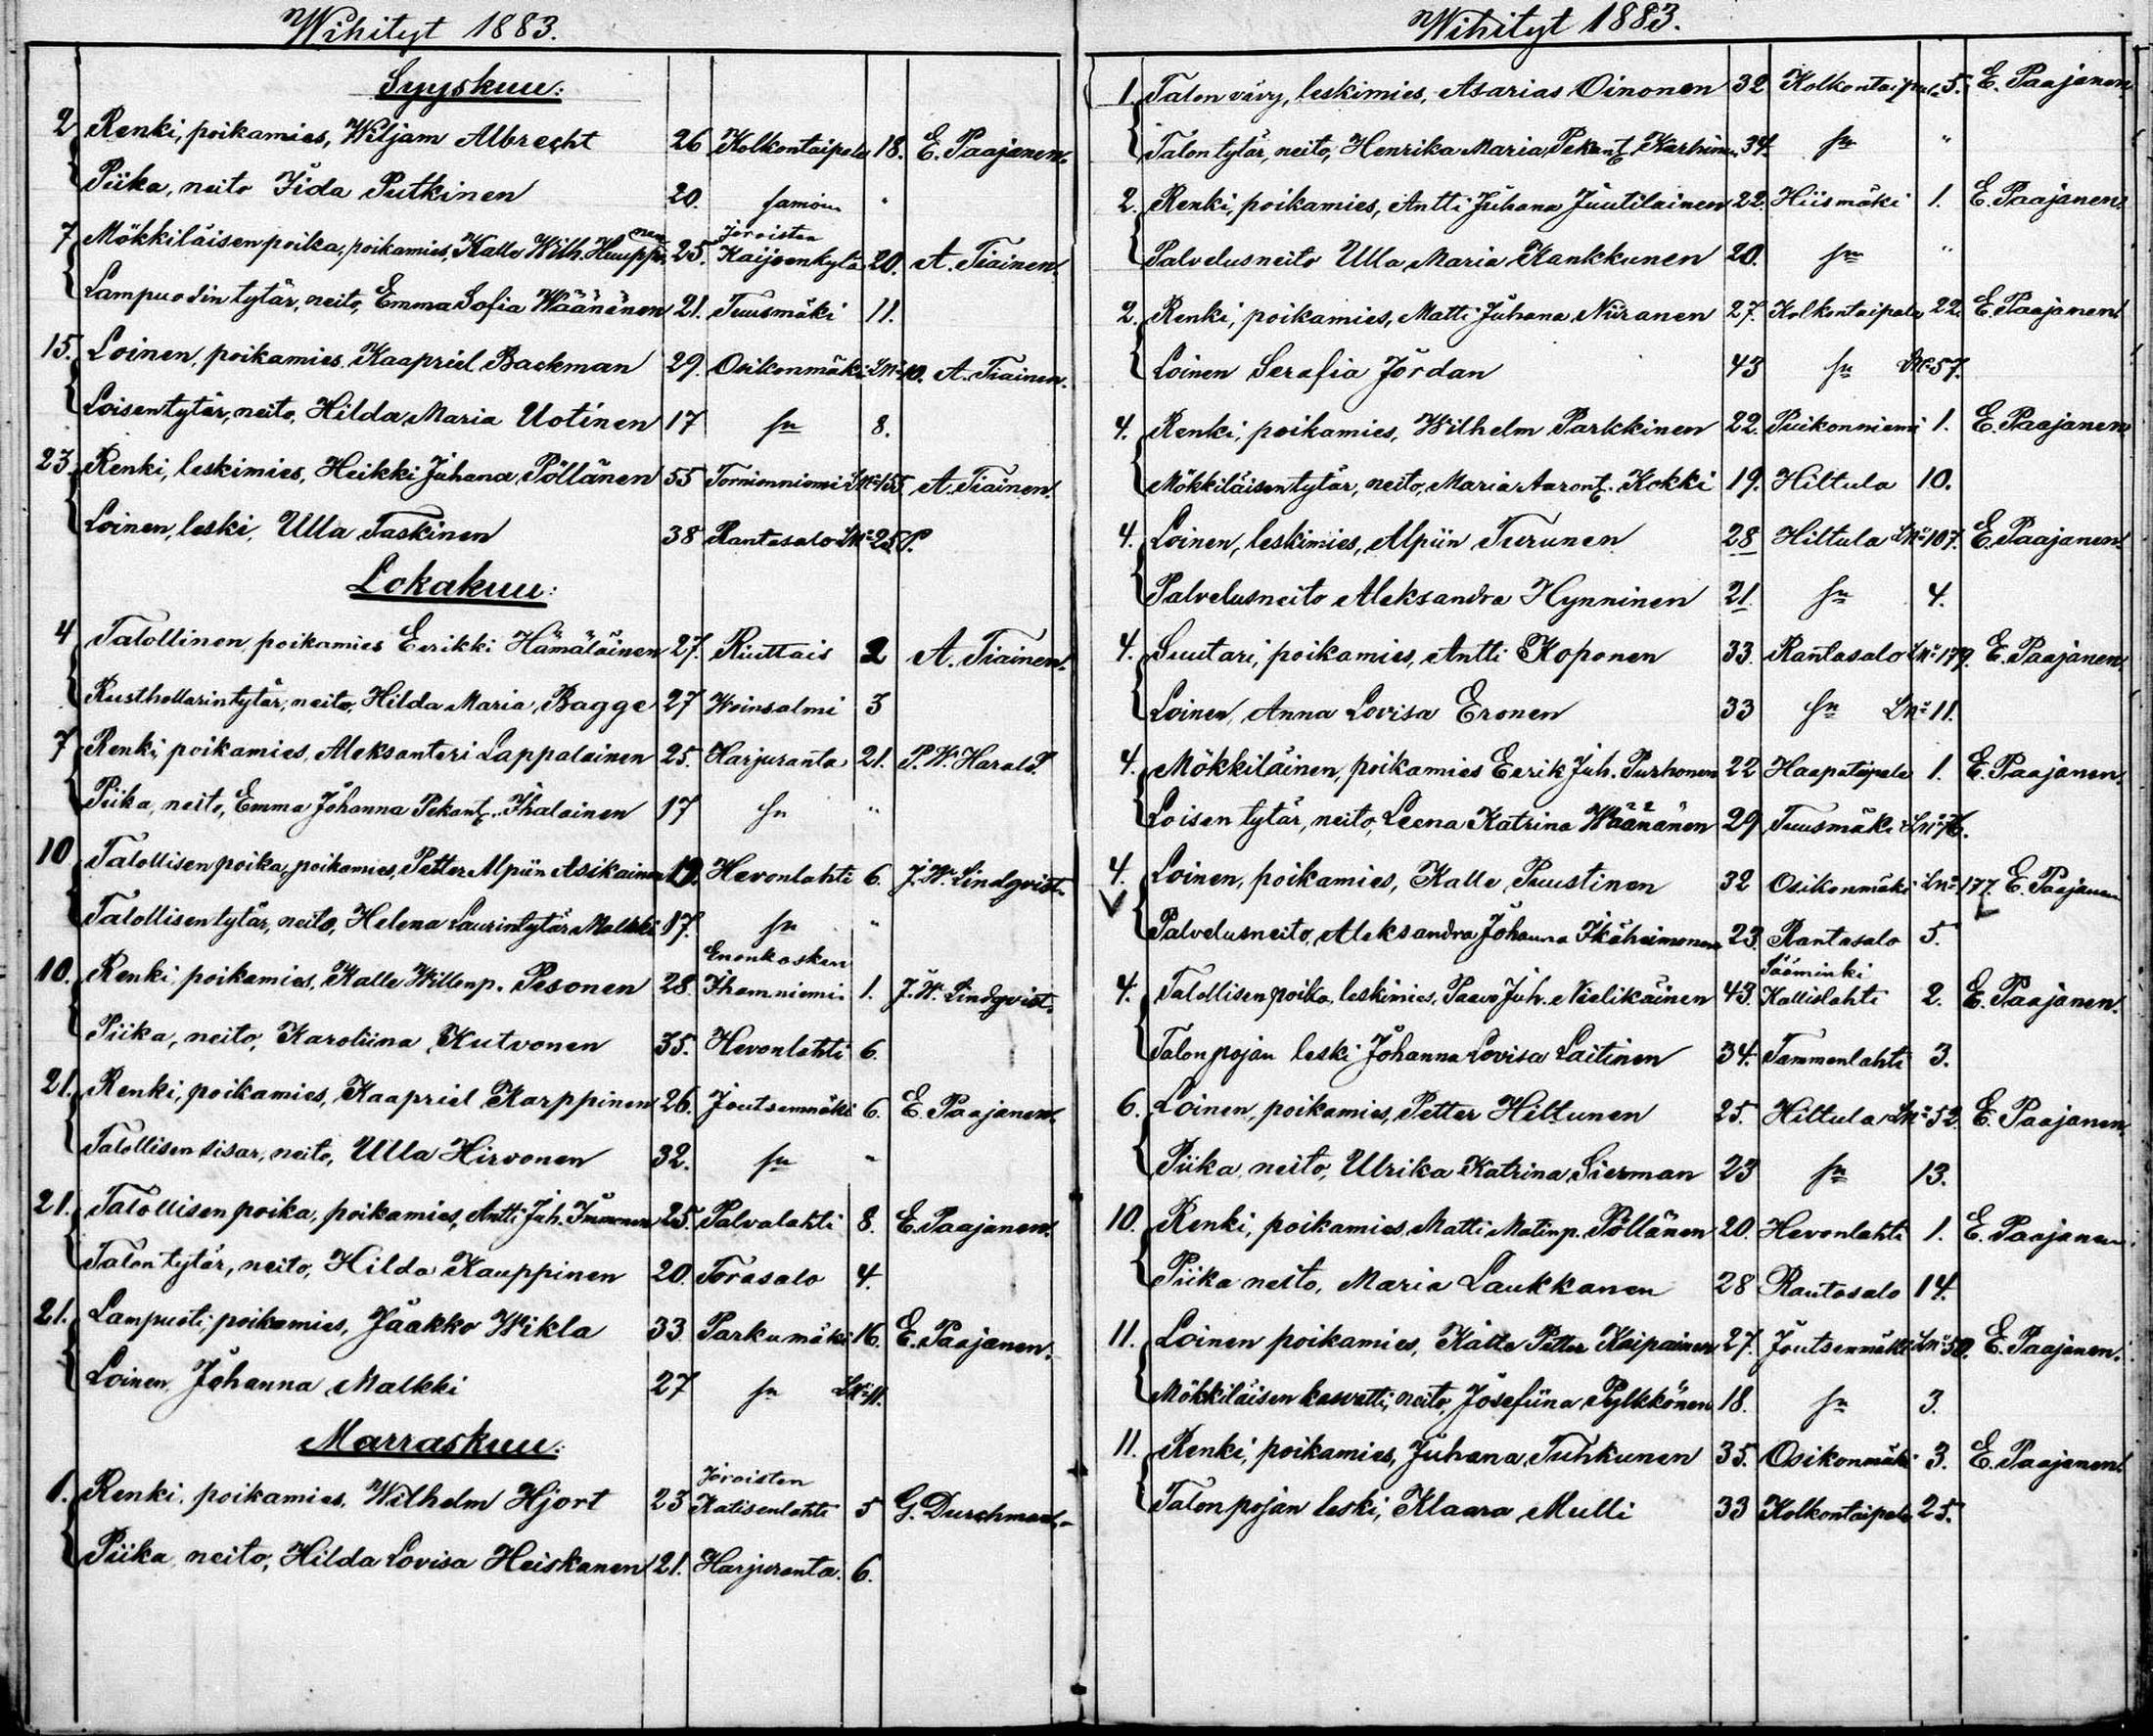 Wihityt 1883.
Syyskuu:
2 Renki, poikamies, Wiljam Albrecht 26 Kolkontaipale 18. E. Paajanen.
Piika, neito Iida Putkinen 20. samoin "
7 Mökkiläisen poika, poikamies, Kalle Wilh. Huuppo nen 25. Joroisten Kaijeenkylä 20. A. Tiainen.
Lampuodin tytär, neito, Emma Sofia Wäänänen 21. Tuusmäki 11.
15. Loinen, poikamies, Kaapriel Backman 29. Osikonmäki LNo 10. A. Tiainen.
Loisen tytär, neito, Hilda Maria Uotinen 17 sn 8.
23. Renki, leskimies, Heikki Juhana Pöllänen 55 Tornionniemi LNo 155. A. Tiainen.
Loinen, leski, Ulla Taskinen 38 Rantasalo LNo 25
Lokakuu:
4 Talollinen poikamies Eerikki Hämäläinen 27. Riuttais 2 A. Tiainen.
Rusthollarin tytär, neito, Hilda Maria Bagge 27 Woinsalmi 3
7 Renki, poikamies, Aleksanteri Lappalainen 25. Harjuranta 21. P. W. Harald.
Piika, neito, Emma Johanna Pekant. Ihalainen 17 sn "
10 Talollisen poika, poikamies, Petter Alpiin Asikainen 19. Hevonlahti 6. J. W. Lindqvist.
Talollisen tytär, neito, Helena Laurintytär Malkki 17. sn "
10. Renki, poikamies, Kalle Willenp. Pesonen 28. Enonkosken Ihamniemi 1. J. W. Lindqvist.
Piika, neito, Karoliina Kutvonen 35. Hevonlahti 6.
21. Renki, poikamies, Kaapriel Karppinen 26. Joutsenmäki 6. E. Paajanen.
Talollisen sisar, neito, Ulla Hirvonen 32. sn "
21. Talollisen poika, poikamies, Antti Juh. Immonen 25. Palvalahti 8. E. Paajanen.
Talon tytär, neito, Hilda Kauppinen 20. Torasalo 4.
21. Lampuoti, poikamies, Jaakko Wikla 33. Parkumäki 16. E. Paajanen.
Loinen, Johanna Malkki 27 sn LNo 11.
Marraskuu:
1. Renki, poikamies, Wilhelm Hjort 23 Joroisten Katisenlahti 5 G. Durchman.
Piika, neito, Hilda Lovisa Heiskanen 21. Harjuranta 6.
Wihityt 1883.
1. Talon vävy, leskimies, Asarias Oinonen 32 Kolkontaipale 5. E. Paajanen.
Talon tytär, neito, Henrika Maria Pekant. Karhinen 34. sn "
2. Renki, poikamies, Antti Juhana Juutilainen 22. Hiismäki 1. E. Paajanen.
Palvelusneito Ulla Maria Kankkunen 20. sn "
2. Renki, poikamies, Matti Juhana Niiranen 27. Kolkontaipale 22. E. Paajanen.
Loinen Serafia Jordan 43 sn LNo 57.
4. Renki, poikamies, Wilhelm Parkkinen 22. Puikonniemi 1. E. Paajanen.
Mökkiläisen tytär, neito, Maria Aaront. Kokki 19. Hiltula 10.
4. Loinen, leskimies, Alpiin Turunen 28 Hiltula LNo 107. E. Paajanen.
Palvelusneito Aleksandra Hynninen 21. sn 4.
4. Suutari, poikamies, Antti Koponen 33. Rantasalo LNo 179. E. Paajanen.
Loinen, Anna Lovisa Eronen 33 sn LNo 11.
4. Mökkiläinen, poikamies Eerik Juh. Purhonen 22 Haapataipale 1. E. Paajanen.
Loisen tytär, neito, Leena Katrina Wäänänen 29 Tuusmäki LNo 76.
4. Loinen, poikamies, Kalle Puustinen 32 Osikonmäki LNo 177. E. Paajanen
Palvelusneito, Aleksandra Johanna Ikäheimonen 23. Rantasalo 5.
4. Talollisen poika, leskimies, Paavo Juh. Nielikäinen 43. Sääminki Kallislahti 2. E. Paajanen.
Talon pojan leski Johanna Lovisa Laitinen 34. Tammenlahti 3.
6. Loinen, poikamies, Petter Hiltunen 25. Hiltula LNo 52. E. Paajanen.
Piika, neito, Ulrika Katrina Sierman 23 sn 13.
10. Renki, poikamies Matti Matinp. Pöllänen 20. Hevonlahti 1. E. Paajanen.
Piika neito, Maria Laukkanen 28 Rantasalo 14.
11. Loinen poikamies, Kalle Petter Kaipainen 27. Joutsenmäki LNo 50. E. Paajanen.
Mökkiläisen kasvatti, neito, Josefiina Pylkkönen 18. sn 3.
11. Renki, poikamies, Juhana Tuhkunen 35. Osikonmäki 3. E. Paajanen.
Talon pojan leski, Klaara Mulli 33 Kolkontaipale 25.